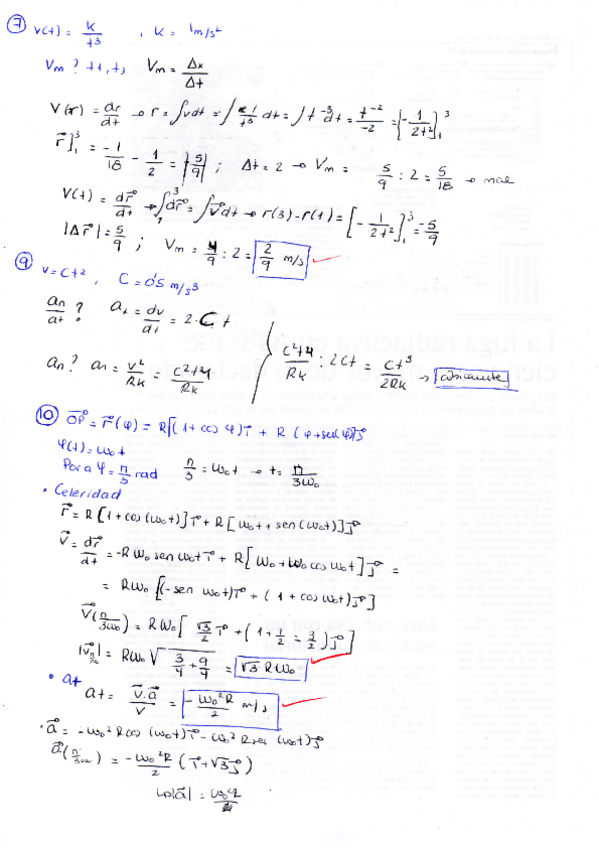 ⑦ v(t) = k/t³ , k = 1m/s²
Vm? t1, t3 Vm = Δx/Δt
V(r) = dr/dt → r = ∫vdt = ∫1/t³ dt = ∫t⁻³dt = t⁻²/-2 = [-1/2t²]₁³
r⃗]₁³ = -1/18 - 1/2 = |5/9| ; Δt = 2 → Vm = 5/9 : 2 = 5/18 → mal
V(t) = dr⃗/dt → ₁∫³dr⃗ = ∫v⃗dt → r(3) - r(1) = [-1/2t²]₁³ = -5/9
|Δr⃗| = 5/9 ; Vm = 4/9 : 2 = 2/9 m/s
⑨ v = Ct² , C = 0'5 m/s³
an/at? at = dv/dt = 2·C t
an? an = v²/Rk = C²t⁴/Rk
C²t⁴/Rk : 2Ct = Ct³/2Rk →
⑩ OP⃗ = r⃗(φ) = R[(1 + cos φ)i⃗ + R (φ + sen φ)j⃗
φ(t) = ω₀t
Para φ = π/3 rad π/3 = ω₀t → t = π/3ω₀
• Celeridad
r⃗ = R[1 + cos(ω₀t)]i⃗ + R[ω₀t + sen(ω₀t)]j⃗
v⃗ = dr⃗/dt = -Rω₀ sen ω₀t i⃗ + R[ω₀ + ω₀ cos ω₀t]j⃗ =
= Rω₀ [(-sen ω₀t)i⃗ + (1 + cos ω₀t)j⃗]
v⃗(π/3ω₀) = Rω₀[√3/2 i⃗ + (1 + 1/2 = 3/2)j⃗]
|v⃗| = Rω₀ √(3/4 + 9/4) = √3 Rω₀
• at
at = v⃗·a⃗/v = -ω₀²R/2 m/s
• a⃗ = -ω₀²R cos (ω₀t)i⃗ - ω₀²R sen (ω₀t)j⃗
a⃗(π/3ω₀) = -ω₀²R/2 (i⃗ + √3j⃗)